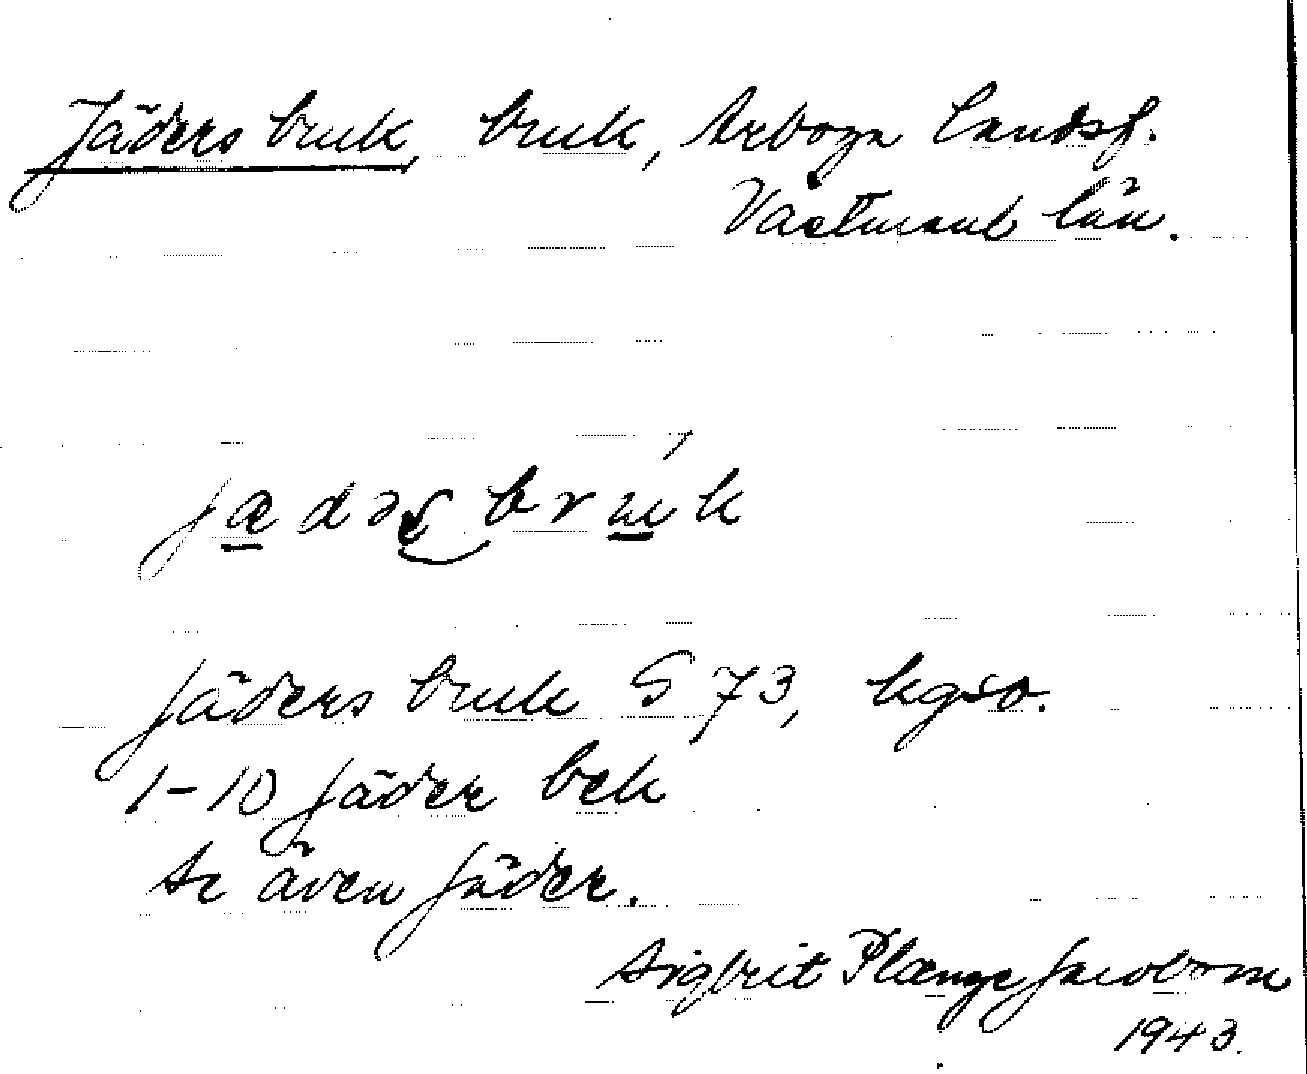 Jäders bruk, bruk, Arboga landsf.
Västmanl. län.
jædəs bruk
Jäders bruk G 73, kgso.
1-10 Jäder bek
Se även Jäder.
Sigbrit Plænge Jacobson
1943.